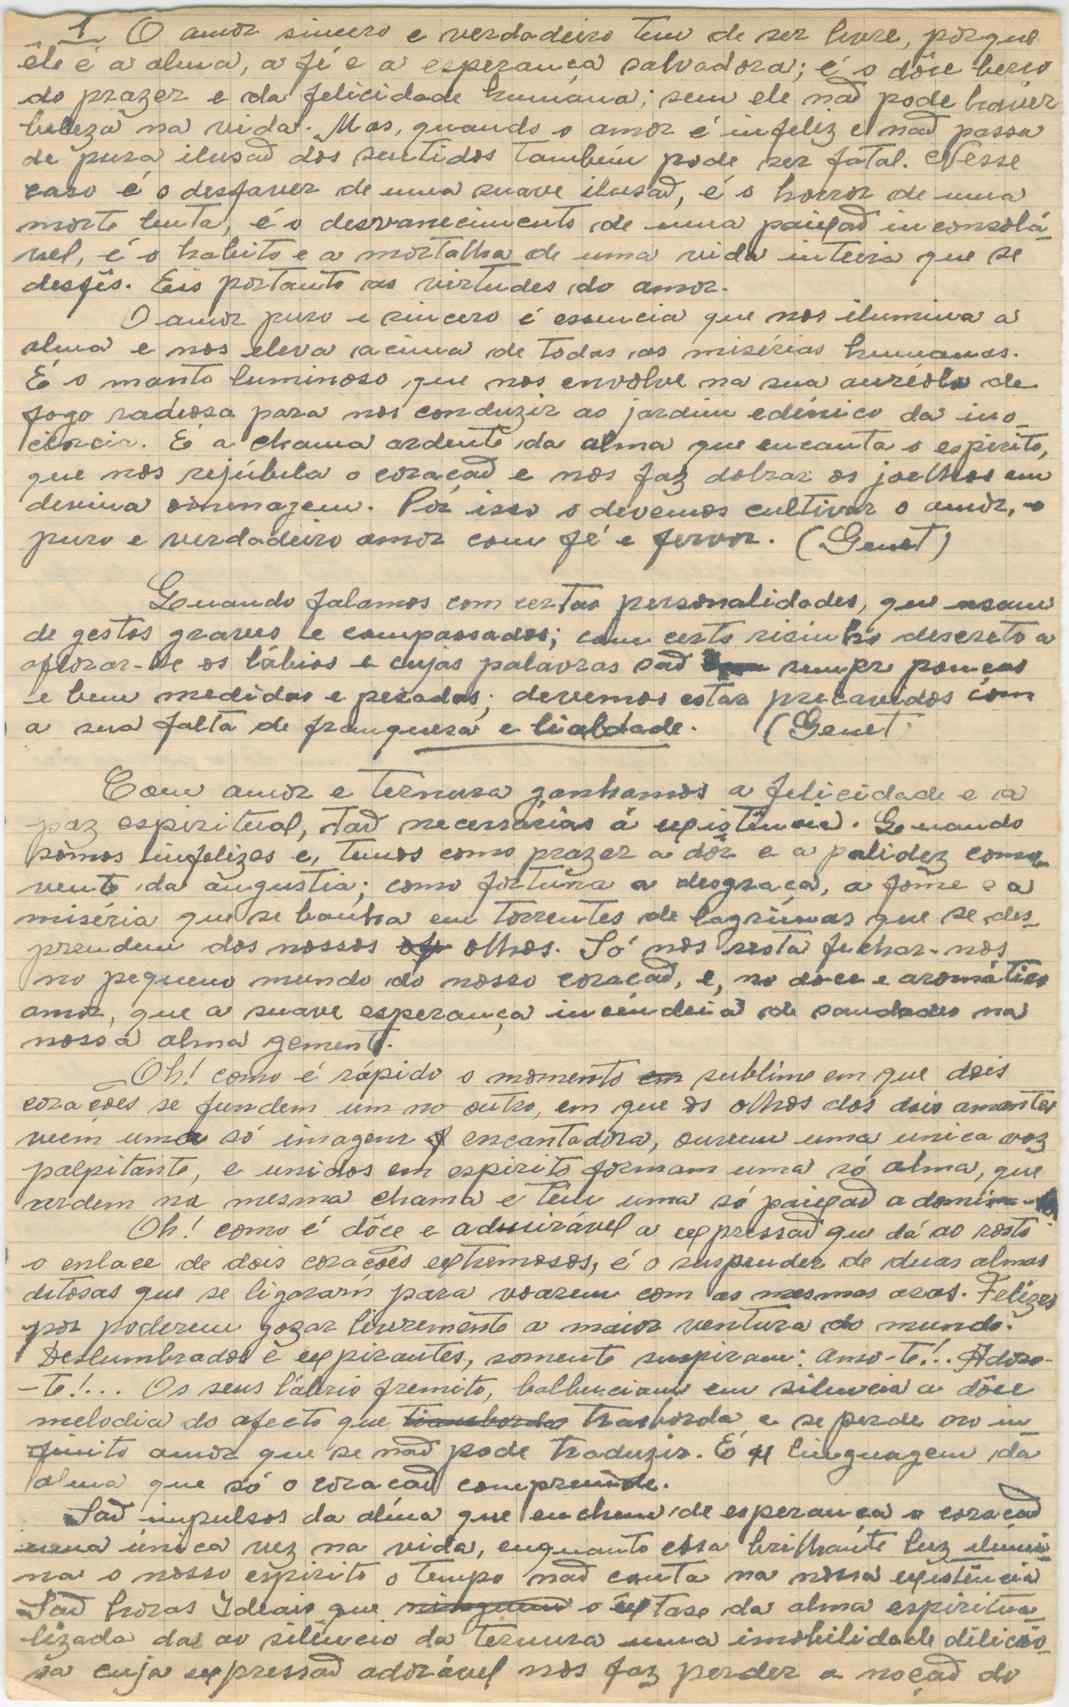 1 O amor sincero e verdadeiro tem de ser livre, porque
êle é a alma, a fé e a esperança salvadora; é o dôce berço
do prazer e da felicidade humâna; sem ele não pode haver
beleza na vida. Mas, quando o amor é infeliz e não passa
de pura ilusão dos sentidos também pode ser fatal. Nesse
caso é o desfazer de uma suave ilusão, é o horror de uma
morte lenta, é o desvanecimento de uma paixão inconsolá-
vel, é o habito e a mortalha de uma vida inteira que se
desfês. Eis portanto as virtudes do amor.
O amor puro e sincero é essencia que nos ilumina a
alma e nos eleva acima de todas as misérias humanas.
É o manto luminoso que nos envolve na sua auréola de
fogo radiosa para nos conduzir ao jardim edénico da ino-
cência. É a chama ardente da alma que encanta o espirito,
que nos rejúbila o coração e nos faz dobrar os joelhos em
devina omenagem. Pôr isso o devemos cultivar o amor, o
puro e verdadeiro amor com fé e fervor. (Genet)
Quando falamos com certas personalidades, que usam
de gestos graves e compassados; com certo risinho descreto a
aflorar-lhe os lábios e cujas palavras são sempre poucas
e bem medidas e pezadas; devemos estar precavidos com
a sua falta de franquesa e lialdade. (Genet
Com amor e ternura ganhamos a felicidade e a
paz espiritual, tão necessarias á existência. Quando
sômos infelizes e, temos como prazer a dôr e a palidez como-
vente da angustia; como fortuna a desgraça, a fome e a
miséria que se banha em torrentes de lagrimas que se des-
prendem dos nossos olhos. Só nos resta fechar-nos
no pequeno mundo do nosso coração, e, no dôce e aromático
amor, que a suave esperança incêndeia de saudades na
nossa alma gemente.
Oh! como é rápido o momento em sublime em que dois
corações se fundem um no outro, em que os olhos dos dois amantes
veem uma só imagem encantadora, ouvem uma unica voz
palpitante, e unidos em espirito formam uma só alma, que
ardem na mesma chama e têm uma só paixão a
Oh! como é dôce e admirável a expressão que dá ao rosto
o enlace de dois corações extremosos, é o suspender de duas almas
ditosas que se ligaram para voarem com as mesmas asas. Felizes
por poderem gozar livremente a maior ventura do mundo.
Deslumbrados e expirantes, somente suspiram: amo-te!.. Adoro-
-te!... Os seus lábrio fremito, balbuciam em silencio a dôce
melodia do afecto que transborda trasborda e se perde no in
finito amor que se não pode traduzir. É a linguagem da
alma que só o coração compreende.
São impulsos da alma que enchem de esperança o coração
uma única vez na vida, enquanto essa brilhante luz ilumi-
na o nosso espirito o tempo não conta na nossa existência
São horas Ideais que ninguem o êxtase da alma espiritua
lizada da ao silêncio da ternura uma imobilidade dilicio-
sa cuja expressão adorável nos faz perder a noção do